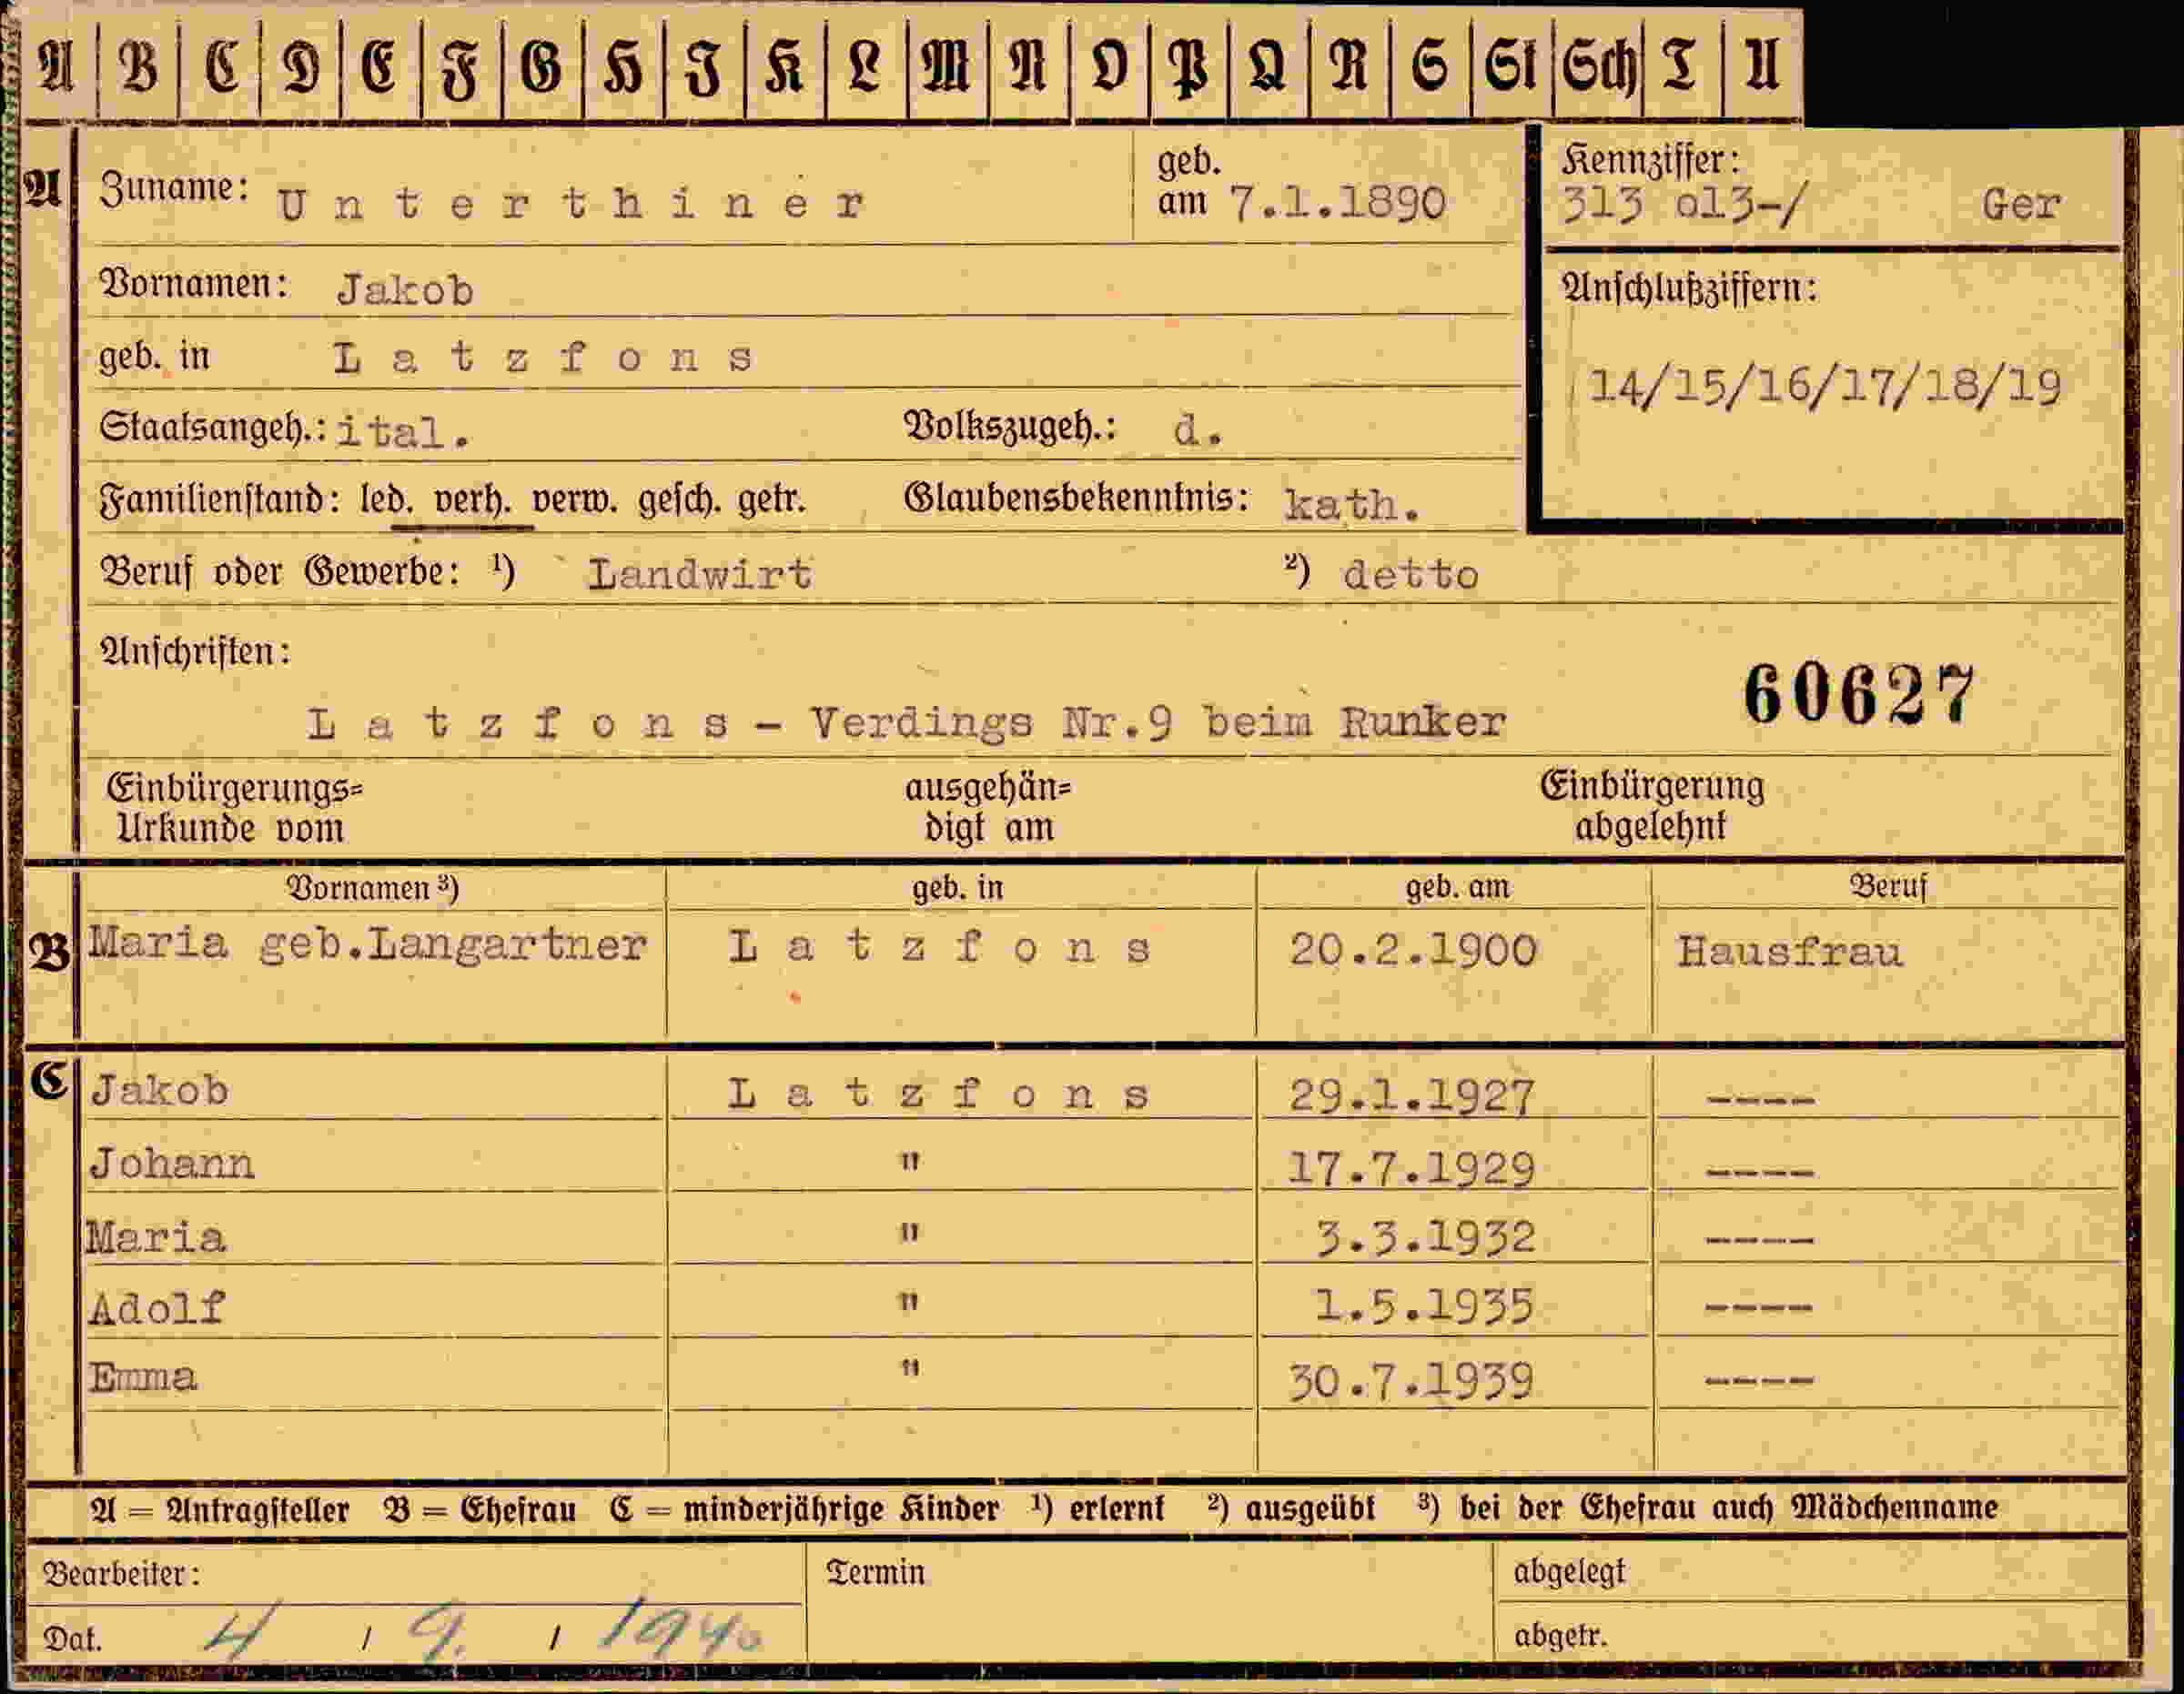 A B C D E F G H I K L M N O P Q R S St Sch T U
A Zuname: U n t e r t h i n e r geb. am 7.1.1890 Kennziffer: 313 o13-/ Ger
Vornamen: Jakob Anschlußziffern:
geb. in L a t z f o n s 14/15/16/17/18/19
Staatsangeh.: ital. Volkszugeh.: d.
Familienstand: led. verh. verw. gesch. getr. Glaubensbekenntnis: kath.
Beruf oder Gewerbe: ¹) Landwirt ²) detto
Anschriften:
60627
L a t z f o n s - Verdings Nr.9 beim Runker
Einbürgerungs= ausgehän= Einbürgerung
Urkunde vom digt am abgelehnt
Vornamen ³) geb. in geb. am Beruf
B Maria geb.Langartner L a t z f o n s 20.2.1900 Hausfrau
C Jakob L a t z f o n s 29.1.1927 ----
Johann " 17.7.1929 ----
Maria " 3.3.1932 ----
Adolf " 1.5.1935 ----
Emma " 30.7.1939 ----
A = Antragsteller B = Ehefrau C = minderjährige Kinder ¹) erlernt ²) ausgeübt ³) bei der Ehefrau auch Mädchenname
Bearbeiter: Termin abgelegt
Dat. 4 / 9. / 1940 abgetr.